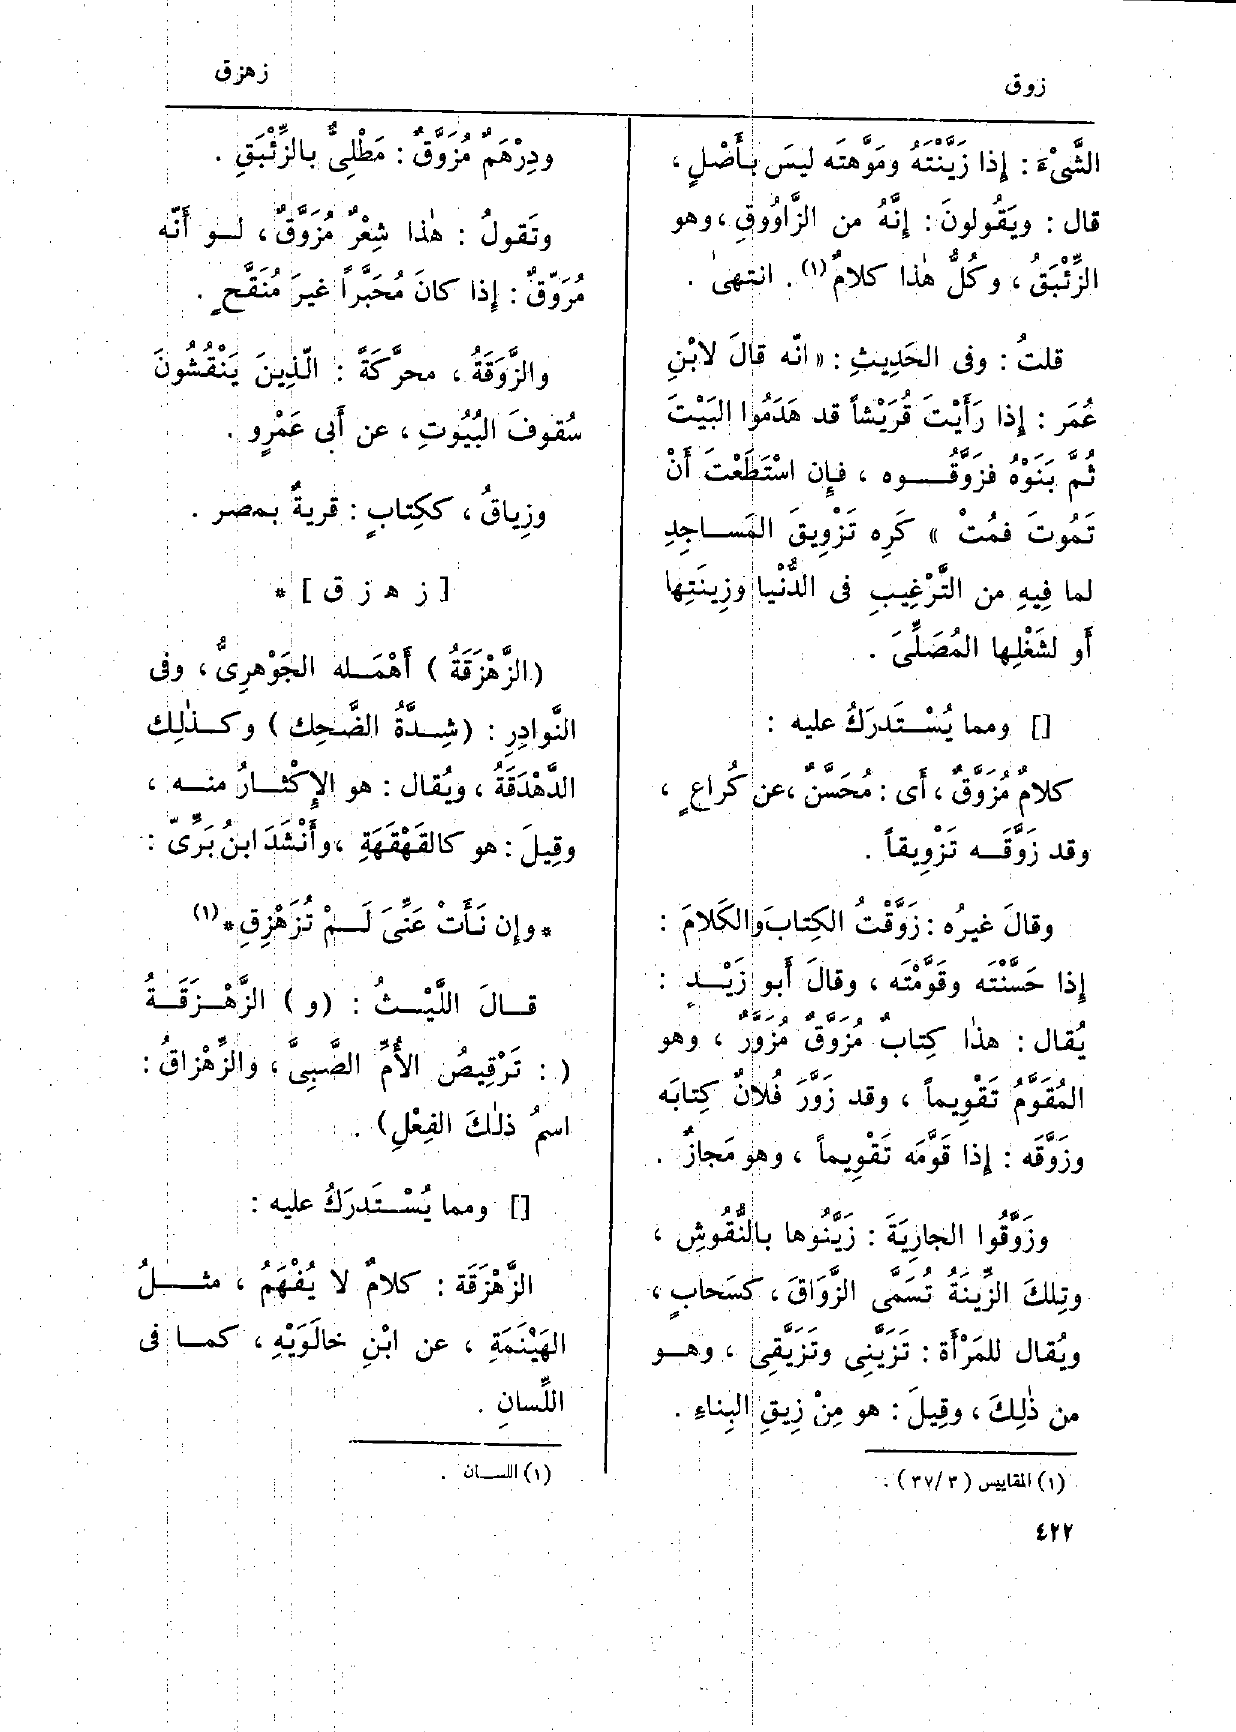 زوق
زهزق
الشَّىْءَ : إِذا زَيَّنْتَهُ ومَوَّهتَه ليسَ بأَصْلٍ ،
قال : ويَقُولونَ : إِنَّهُ من الزَّاوُوقِ ، وهو
الزِّئْبَقُ ، وكُلُّ هٰذا كلامٌ (١) . انتهىٰ .
قلتُ : وفى الحَدِيثِ : « انّه قالَ لابْنِ
عُمَر : إِذا رَأَيْتَ قُرَيْشاً قد هَدَمُوا البَيْتَ
ثُمَّ بَنَوْهُ فزَوَّقُـوه ، فإِن اسْتَطَعْتَ أَنْ
تَمُوتَ فمُتْ » كَرِه تَزْوِيقَ المَساجِدِ
لما فِيهِ من التَّرْغِيبِ فى الدُّنْيا وزِينَتِها
أَو لشَغْلِها المُصَلِّىَ .
[] ومما يُسْتَدرَكُ عليه :
كلامٌ مُزَوَّقٌ ، أَى : مُحَسَّنٌ ، عن كُراع ٍ ،
وقد زَوَّقَـه تَزْوِيقاً .
وقالَ غيرُه : زَوَّقْتُ الكِتابَ والكَلامَ :
إِذا حَسَّنْتَه وقَوَّمْتَه ، وقالَ أَبو زَيْـدٍ :
يُقال : هٰذا كِتابٌ مُزَوَّقٌ مُزَوَّرٌ ، وهو
المُقَوَّمُ تَقْوِيماً ، وقد زَوَّرَ فُلانٌ كِتابَه
وزَوَّقَه : إِذا قَوَّمَه تَقْوِيماً ، وهو مَجازٌ .
وزَوَّقُوا الجارِيَةَ : زَيَّنُوها بالنُّقُوشِ ،
وتِلكَ الزِّينَةُ تُسَمَّى الزَّوَاقَ ، كسَحابٍ ،
ويُقال للمَرْأَة : تَزَيَّنِى وتَزَيَّقِى ، وهـو
من ذٰلِكَ ، وقِيلَ : هو مِنْ زِيقِ البِناءِ .
(١) المقاييس ( ٣ /٣٧ ) .
٤٢٢
ودِرْهَمٌ مُزَوَّقٌ : مَطْلِىٌّ بالزِّئْبَقِ .
وتَقولُ : هٰذا شِعْرٌ مُزَوَّقٌ ، لـو أَنَّه
مُرَوَّقٌ : إِذا كانَ مُحَبَّراً غيرَ مُنَقَّح ٍ .
والزَّوَقَةُ ، محرَّكَةً : الَّذِينَ يَنْقُشُونَ
سُقوفَ البُيُوتِ ، عن أَبى عَمْرٍو .
وزِياقُ ، ككِتابٍ : قريةٌ بمصر .
[ ز ه ز ق ] *
( الزَّهْزَقَةُ ) أَهْمَـله الجَوْهرِىُّ ، وفى
النَّوادِرِ : (شِـدَّةُ الضَّحِك ) وكـذٰلِك
الدَّهْدَقَةُ ، ويُقال : هو الإِكْثـارُ منـه ،
وقِيلَ : هو كالقَهْقَهَةِ ، وأَنْشَدَ ابنُ بَرِّىّ :
* وإِن نَـأَتْ عَنِّىَ لَـمْ تُزَهْزِقِ * (١)
قـالَ اللَّيْـثُ : (و ) الزَّهْـزَقَـةُ
( : تَرْقِيصُ الأُمِّ الصَّبِىَّ ، والزِّهْزاقُ :
اسمُ ذٰلكَ الفِعْلِ) .
[] ومما يُسْـتَدرَكُ عليه :
الزَّهْزَقَة : كلامٌ لا يُفْهَمُ ، مثـلُ
الهَيْنَمَةِ ، عن ابْنِ خالَوَيْهِ ، كمـا فى
اللِّسانِ .
(١) اللسـان .